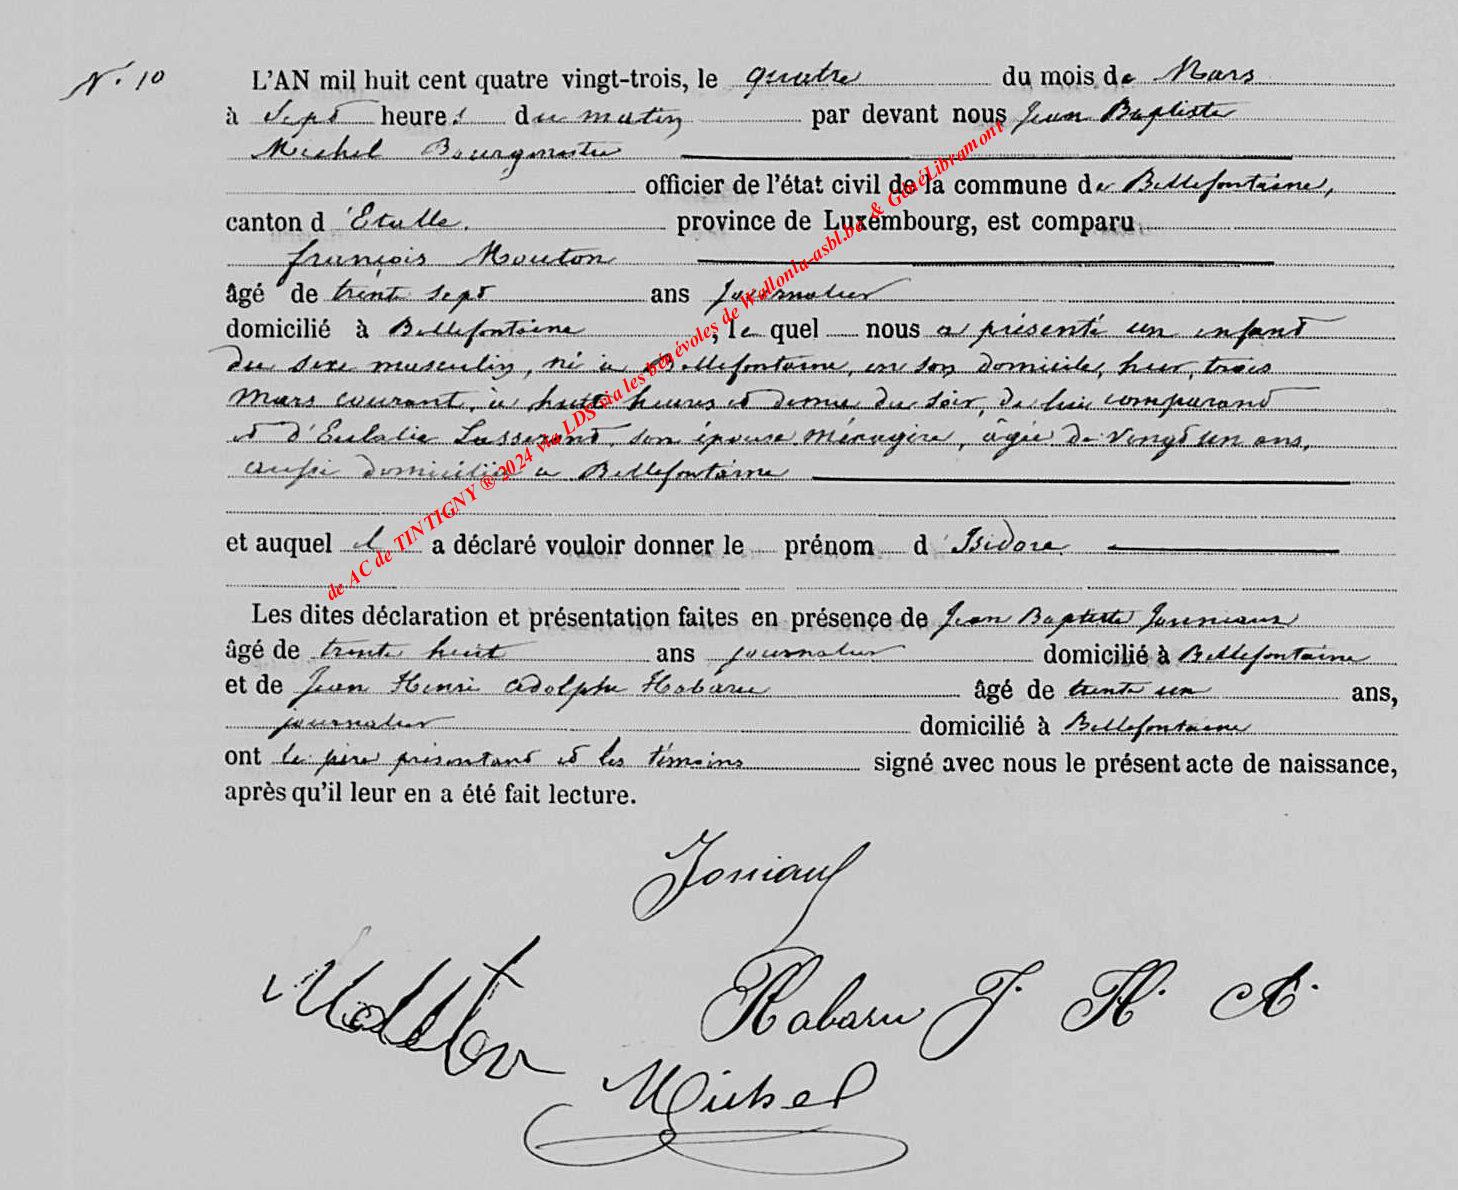 N. 10
L'AN mil huit cent quatre vingt-trois, le quatre du mois de Mars
à Sept heures du matin par devant nous Jean Baptiste
Michel Bourgmestre
officier de l'état civil de la commune de Bellefontaine,
canton d'Etalle. province de Luxembourg, est comparu
françois Mouton
âgé de trente sept ans journalier
domicilié à Bellefontaine, le quel nous a présenté un enfant
du sexe masculin, né à Bellefontaine, en son domicile, hier, trois
Mars courant, à huit heures et demie du soir, de lui comparant
et d'Eulalie Lasserant, son épouse Ménagère, âgée de vingt un ans,
aussi domiciliée à Bellefontaine
et auquel il a déclaré vouloir donner le prénom d'Isidore
Les dites déclaration et présentation faites en présence de Jean Baptiste
âgé de trente huit ans journalier domicilié à Bellefontaine
et de Jean Henri Adolphe Habaru âgé de trente un ans,
journalier domicilié à Bellefontaine
ont le père présentant et les témoins signé avec nous le présent acte de naissance,
après qu'il leur en a été fait lecture.
de AC de TINTIGNY ® 2024 via LDS via les bénévoles de Wallonia-asbl.be & GénéLibramont
Habaru J. H. A.
Michel